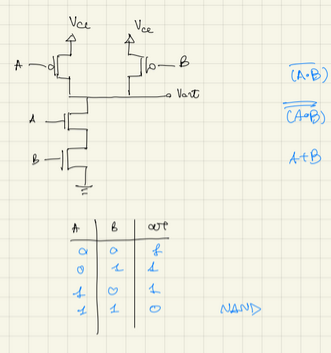 Vcc Vcc
A B
Vout
A
B
(A·B)
(A·B)
A+B
A B out
0 0 1
0 1 1
1 0 1
1 1 0
NAND